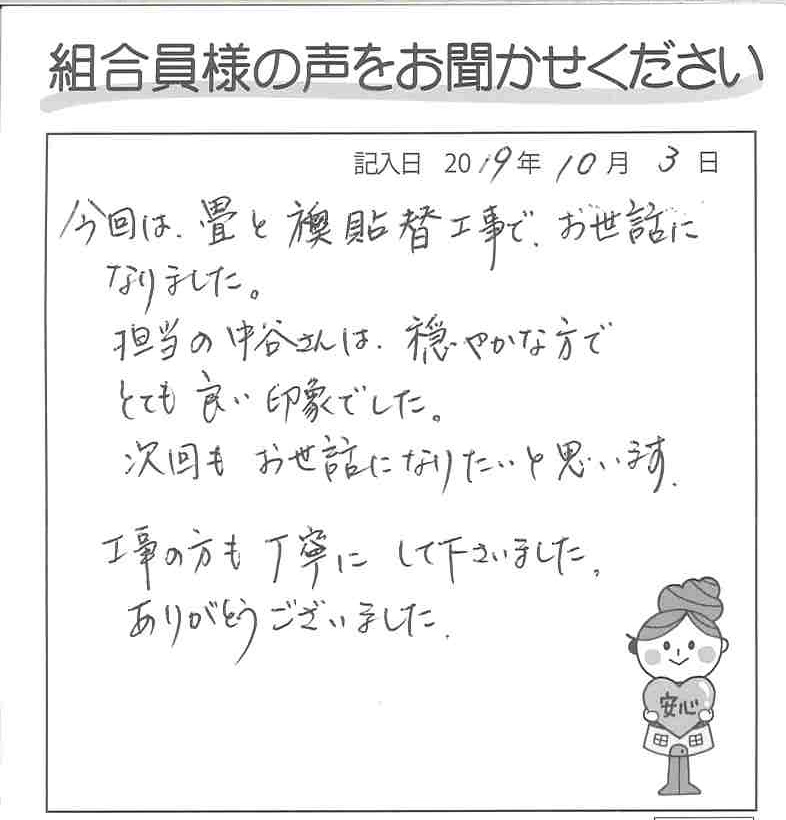 組合員様の声をお聞かせください
記入日 2019年 10月 3日
今回は、畳と襖貼替工事で、お世話に
なりました。
担当の中谷さんは、穏やかな方で
とても良い印象でした。
次回もお世話になりたいと思います。
工事の方も丁寧にして下さいました。
ありがとうございました。
安心